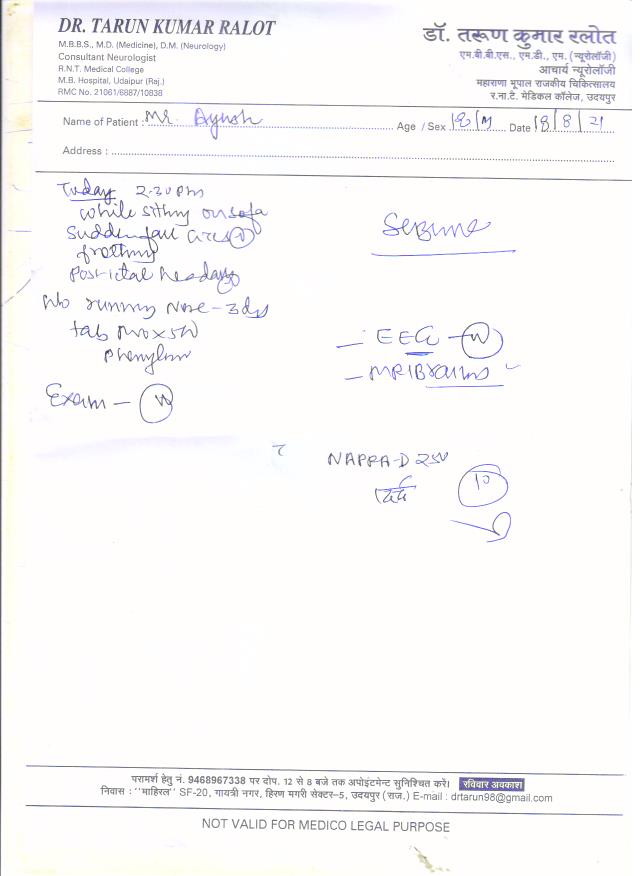 DR. TARUN KUMAR RALOT
M.B.B.S., M.D. (Medicine), D.M. (Neurology)
Consultant Neurologist
R.N.T. Medical College
M.B. Hospital, Udaipur (Raj.)
RMC No. 21061/6887/10838
डॉ. तरूण कुमार रलोत
एम.बी.बी.एस., एम.डी., एम. (न्यूरोलॉजी)
आचार्य न्यूरोलॉजी
महाराणा भूपाल राजकीय चिकित्सालय
र.ना.टे. मेडिकल कॉलेज, उदयपुर
Name of Patient : Mr. Ayush Age / Sex 18/M Date 18/8/21
Address :
Today 2.30 PM
while sitting on sofa
Sudden fall
frothing
Post ictal headache
H/o running Nose - 3 days
tab
Exam - N
Seizure
- EEG - N
- MRI Brain
NAPRA-D 250
दर्द
10
परामर्श हेतु नं. 9468967338 पर दोप. 12 से 8 बजे तक अपोइंटमेन्ट सुनिश्चित करें। रविवार अवकाश
निवास : "माहिरल" SF-20, गायत्री नगर, हिरण मगरी सेक्टर-5, उदयपुर (राज.) E-mail : drtarun98@gmail.com
NOT VALID FOR MEDICO LEGAL PURPOSE